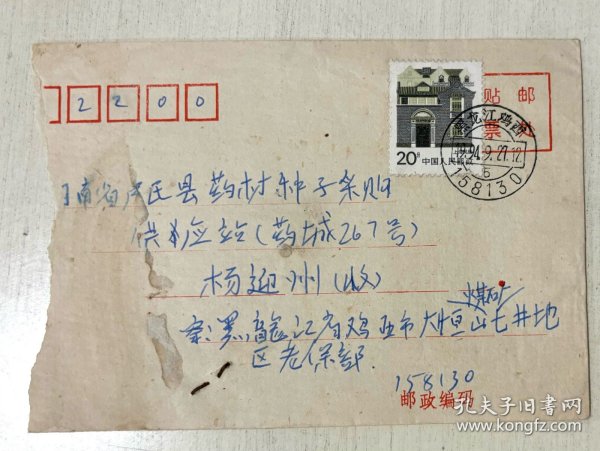 2200
贴邮
票
20分
中国人民邮政
黑龙江鸡西
1994.9.27.12
6
158130
河南省卢氏县药材种子采购
供应站(药城267号)
杨迎州(收)
寄:黑龍江省鸡西市大恒山煤矿七井地
区老保部
158130
邮政编码
孔夫子旧书网
www.kongfz.com